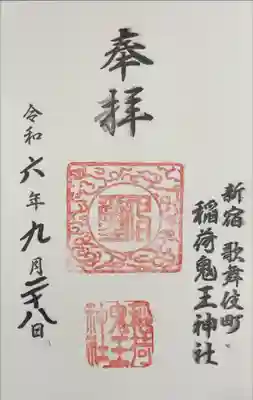 奉拝
新宿 歌舞伎町
稲荷鬼王神社
令和六年九月二十八日
稲荷
鬼王
神社